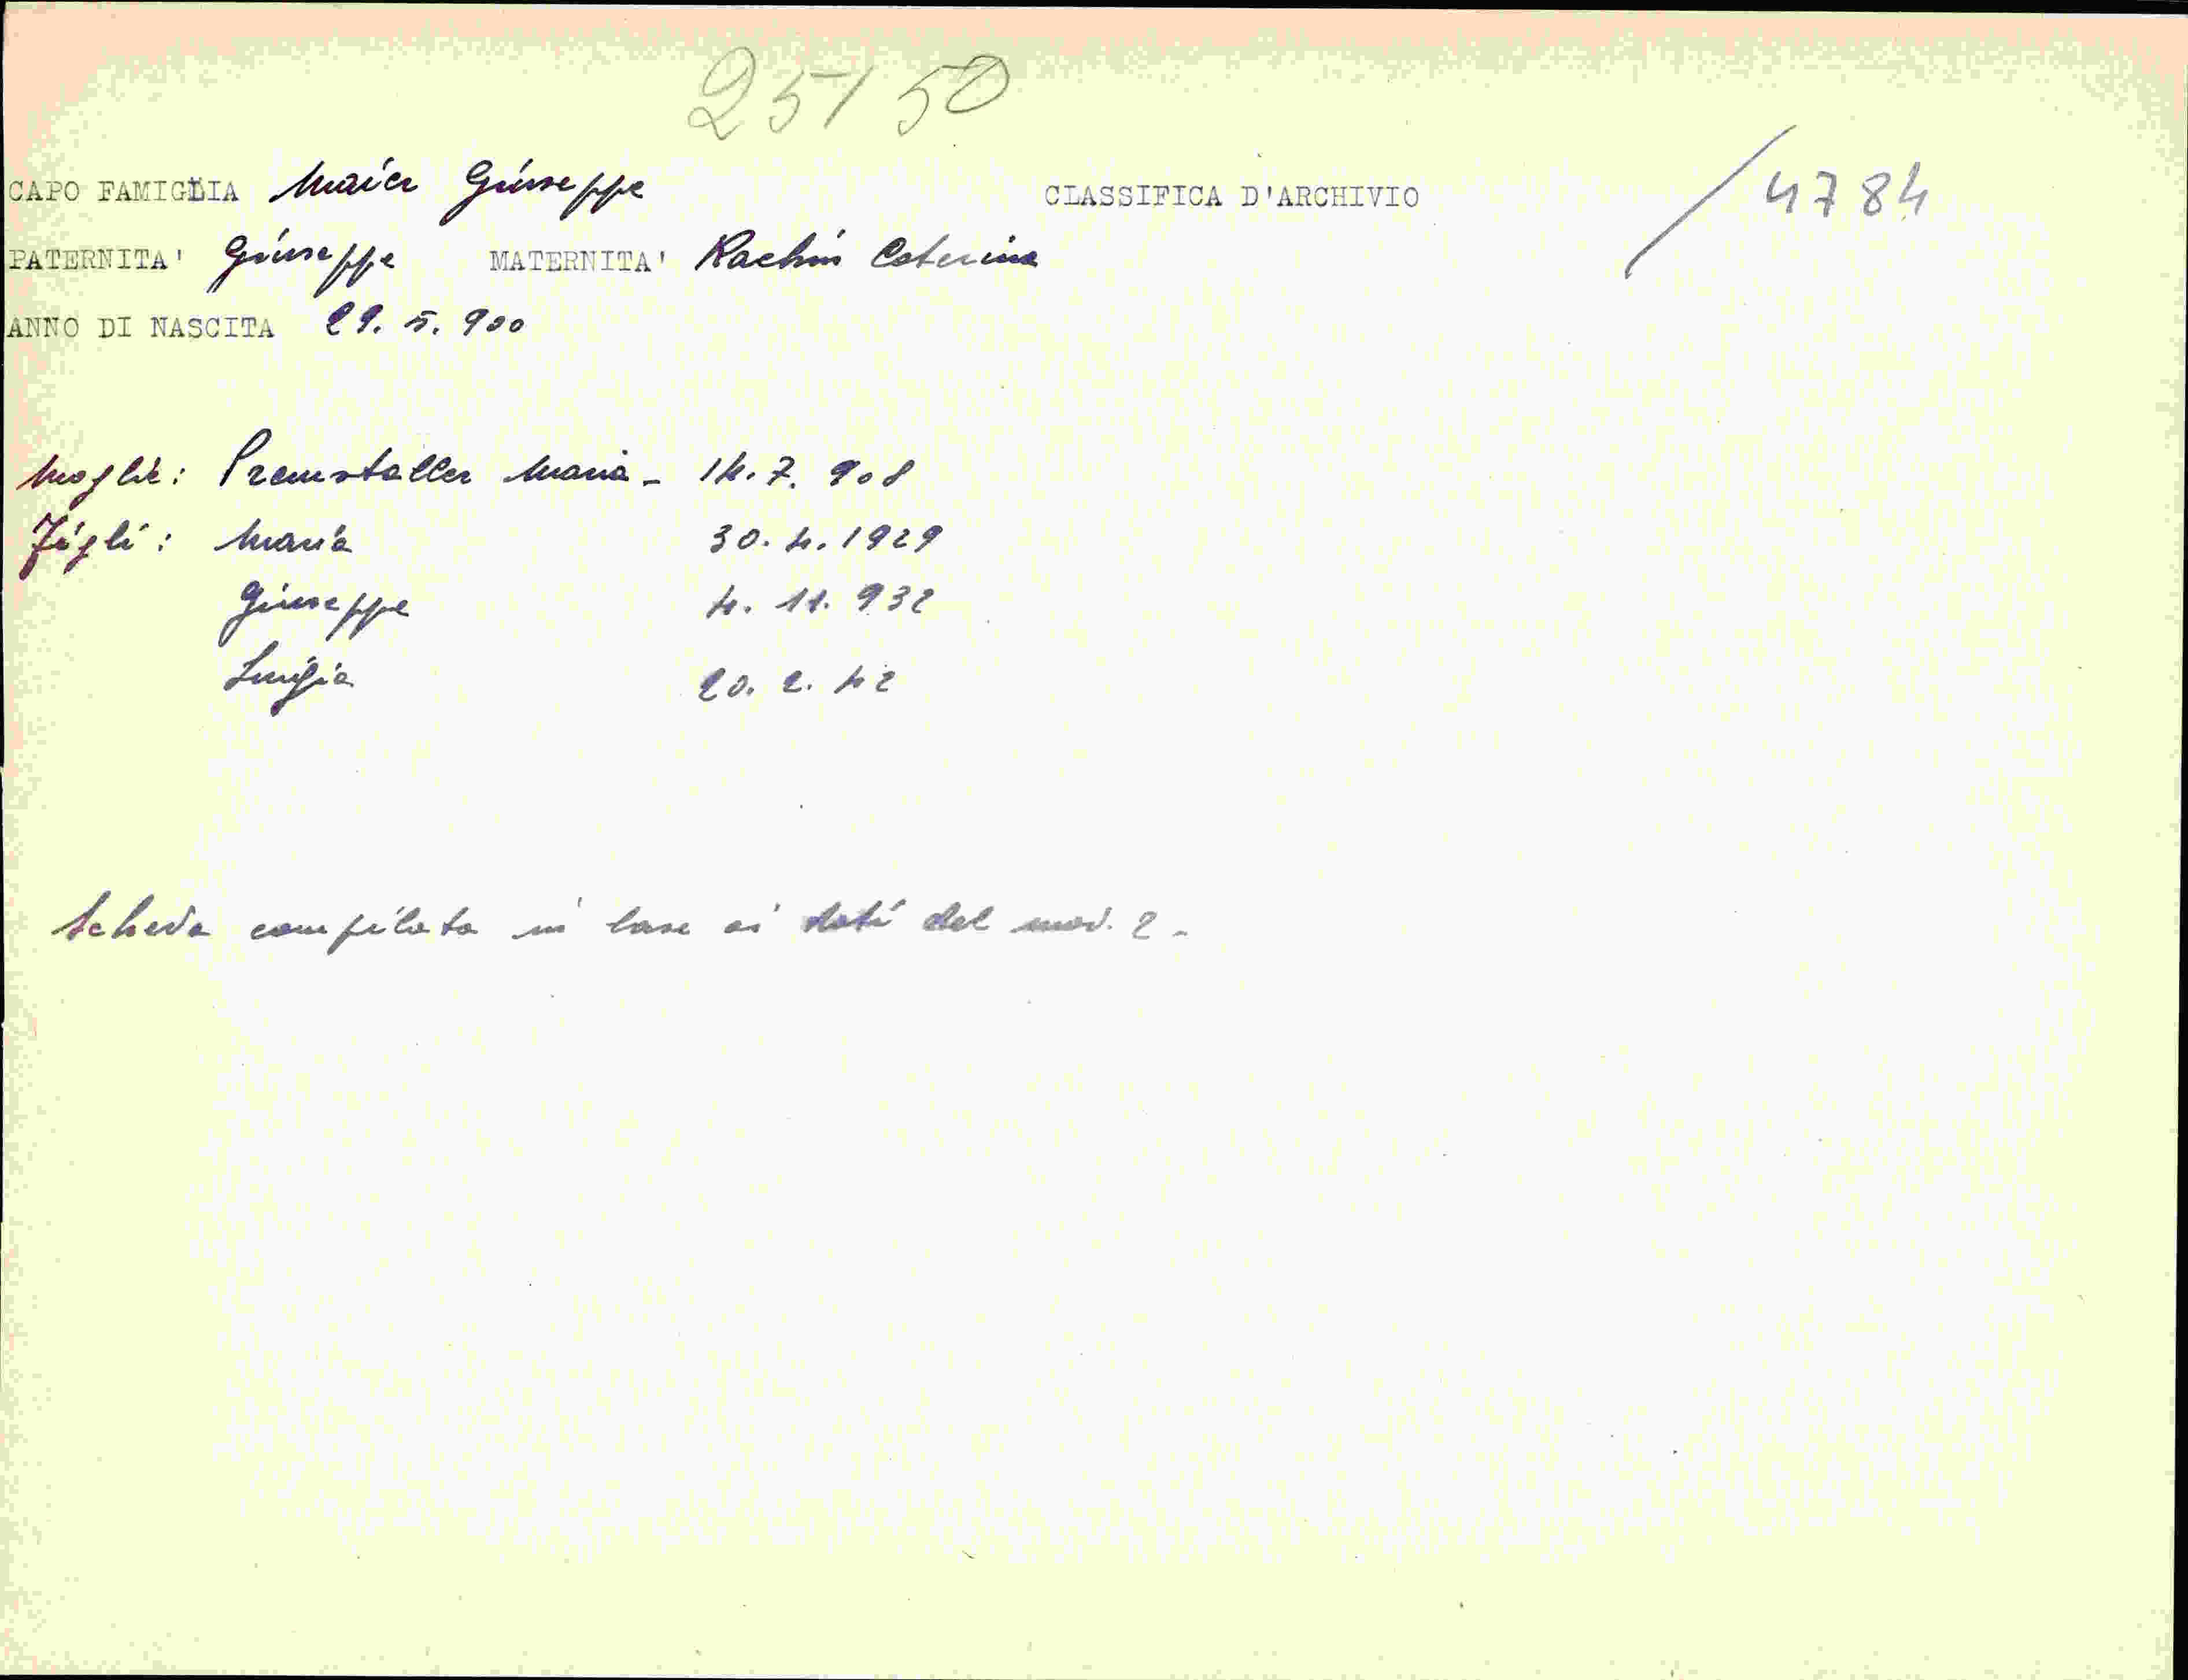 25150
CAPO FAMIGLIA Maier Giuseppe CLASSIFICA D'ARCHIVIO / 4784
PATERNITA' Giuseppe MATERNITA' Caterina
ANNO DI NASCITA 29. 5. 900
Moglie: Premstaller Maria - 14. 7. 908
Figli: Maria 30. 4. 1929
Giuseppe 4. 11. 932
Luigia 20. 2. 42
Scheda compilata in base ai dati del mod. 2 -